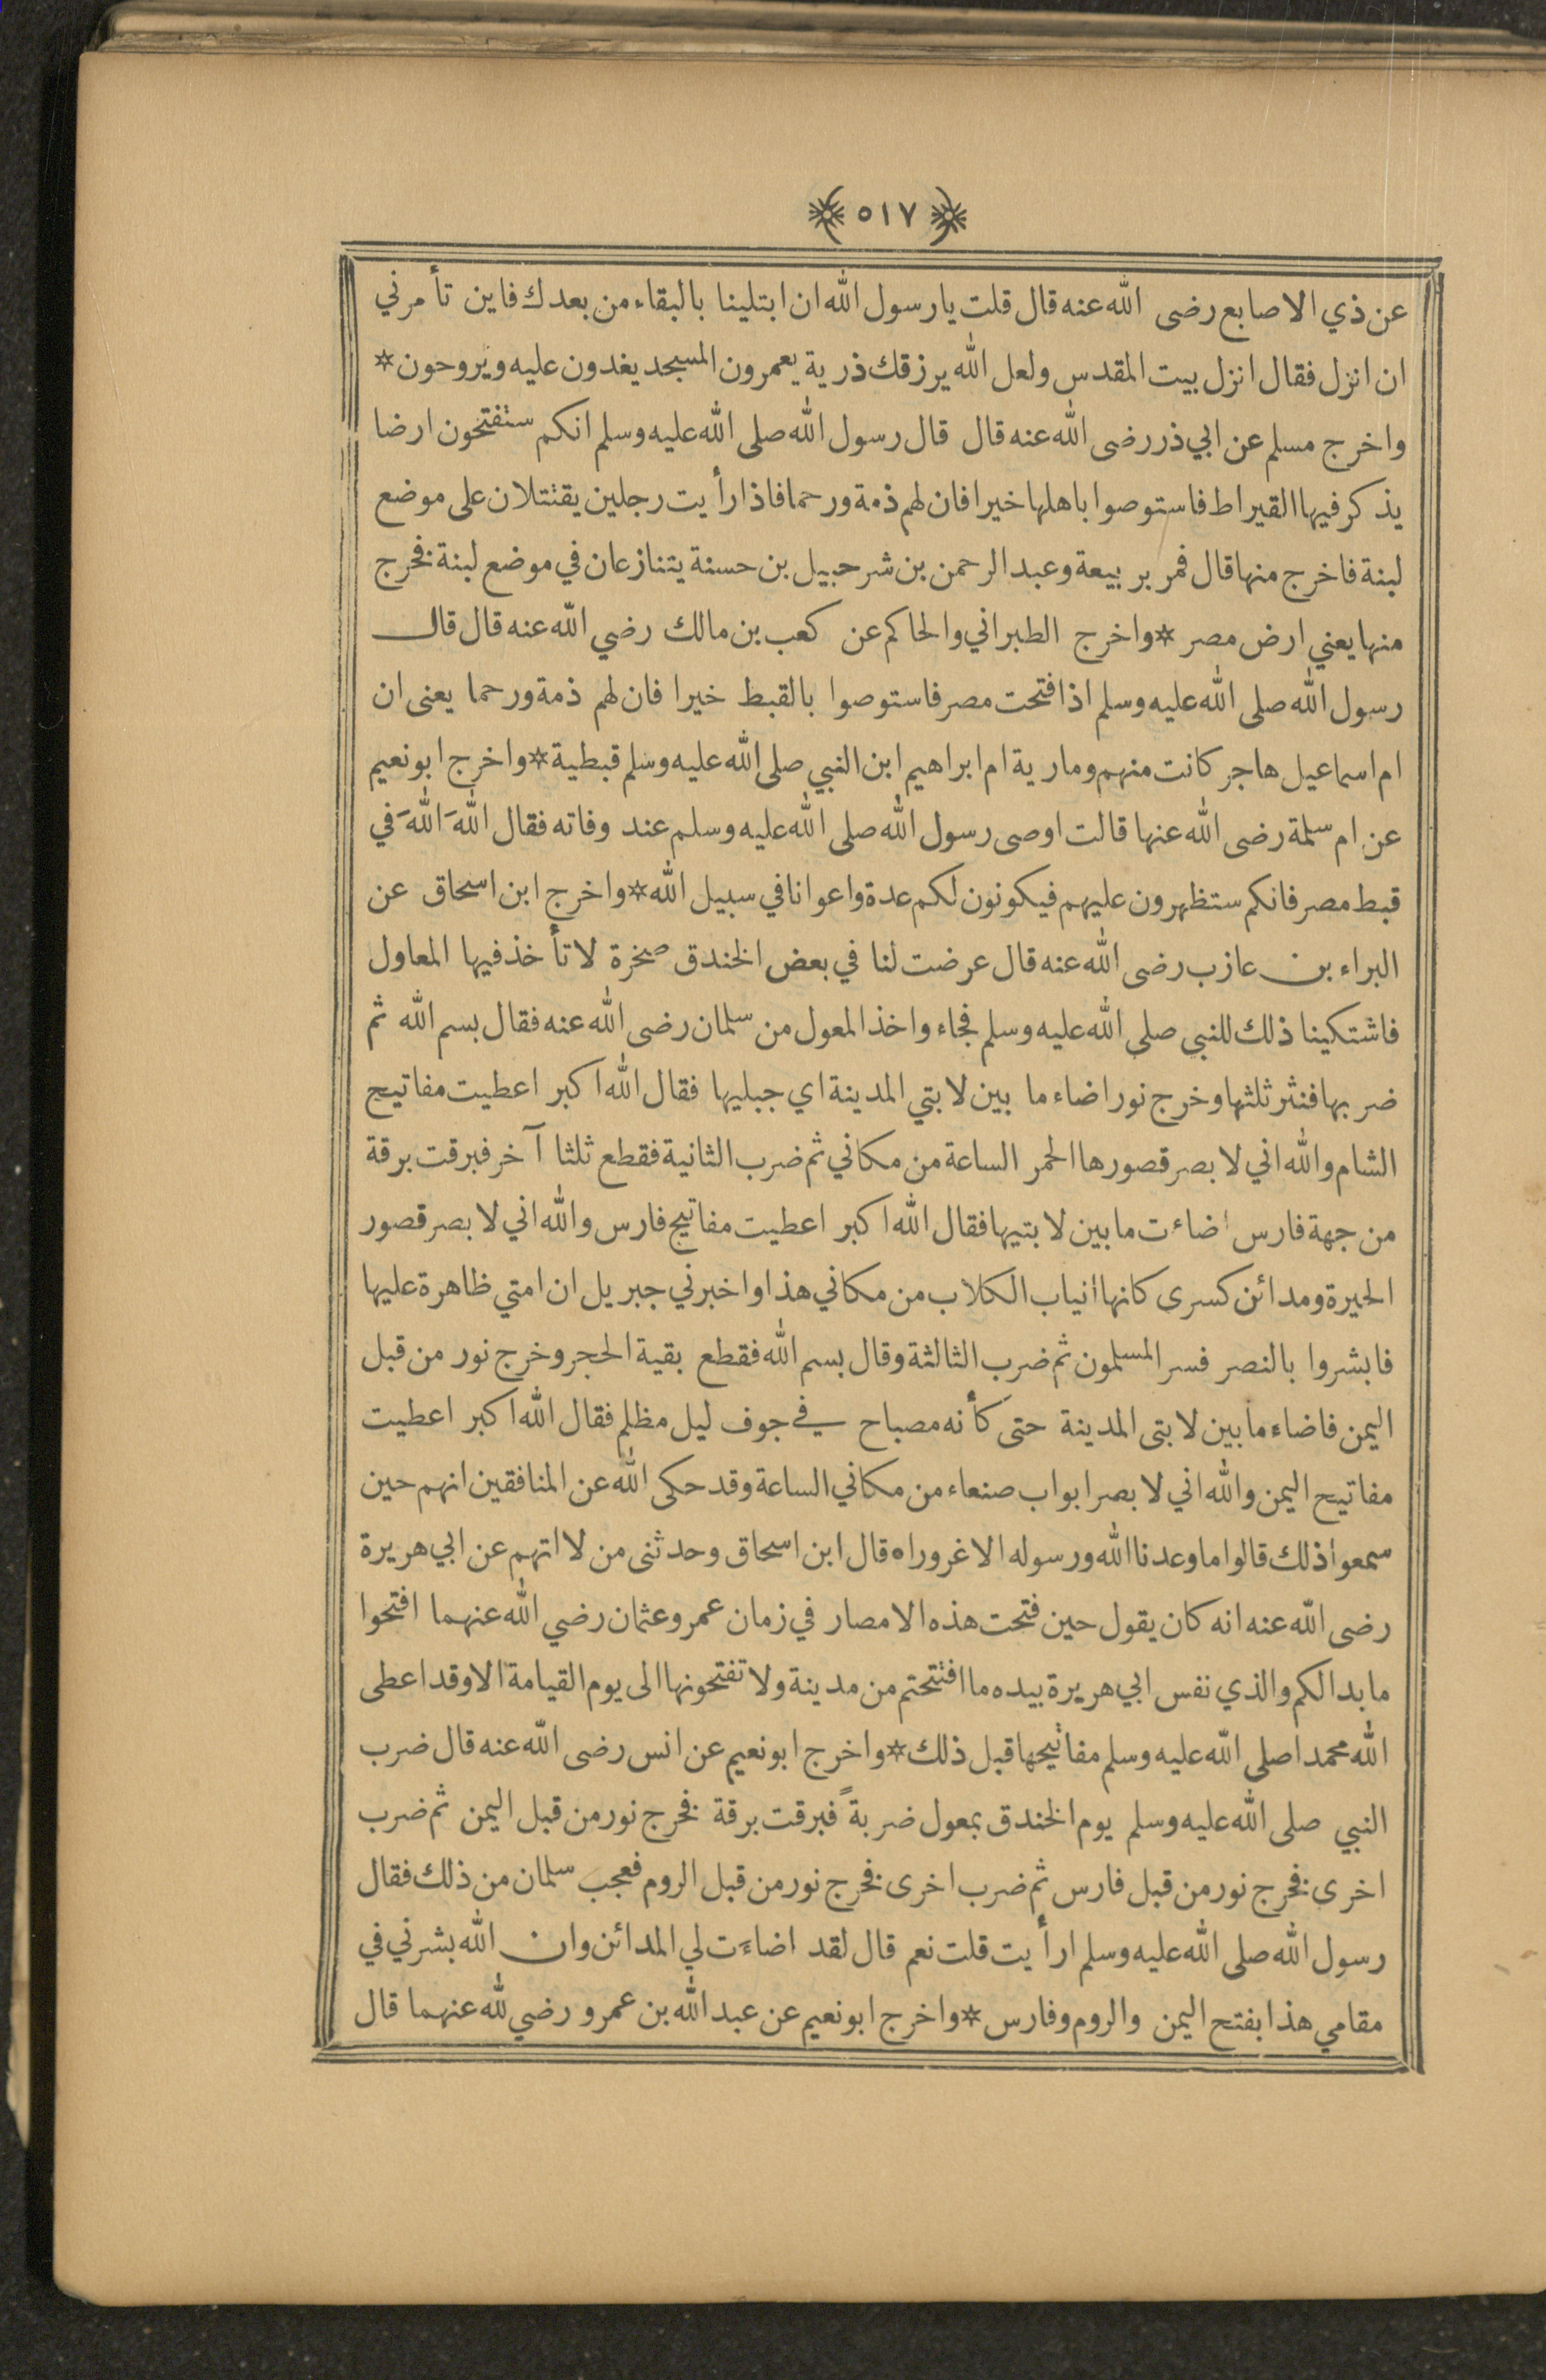 ﴿ ٥١٧ ﴾
عن ذي الاصابع رضى الله عنه قال قلت يا رسول الله ان ابتلينا بالبقاء من بعدك فاين تأمرني
ان انزل فقال انزل بيت المقدس ولعل الله يرزقك ذرية يعمرون المسجد يغدون عليه ويروحون *
واخرج مسلم عن ابي ذر رضى الله عنه قال قال رسول الله صلى الله عليه وسلم انكم ستفتحون ارضا
يذكر فيها القيراط فاستوصوا باهلها خيرا فان لهم ذمة ورحما فاذا رأيت رجلين يقتتلان على موضع
لبنة فاخرج منها قال فمر بربيعة وعبد الرحمن بن شرحبيل بن حسنة يتنازعان في موضع لبنة فخرج
منها يعني ارض مصر * واخرج الطبراني والحاكم عن كعب بن مالك رضي الله عنه قال قال
رسول الله صلى الله عليه وسلم اذا فتحت مصر فاستوصوا بالقبط خيرا فان لهم ذمة ورحما يعنى ان
ام اسماعيل هاجر كانت منهم ومارية ام ابراهيم ابن النبي صلى الله عليه وسلم قبطية * واخرج ابو نعيم
عن ام سلمة رضى الله عنها قالت اوصى رسول الله صلى الله عليه وسلم عند وفاته فقال اللهَ اللهَ في
قبط مصر فانكم ستظهرون عليهم فيكونون لكم عدة واعوانا في سبيل الله * واخرج ابن اسحاق عن
البراء بن عازب رضى الله عنه قال عرضت لنا في بعض الخندق صخرة لا تأخذ فيها المعاول
فاشتكينا ذلك للنبي صلى الله عليه وسلم فجاء واخذ المعول من سلمان رضى الله عنه فقال بسم الله ثم
ضربها فنثر ثلثها وخرج نور اضاء ما بين لابتي المدينة اي جبليها فقال الله اكبر اعطيت مفاتيح
الشام والله اني لابصر قصورها الحمر الساعة من مكاني ثم ضرب الثانية فقطع ثلثا آخر فبرقت برقة
من جهة فارس اضاءت ما بين لابتيها فقال الله اكبر اعطيت مفاتيح فارس والله اني لابصر قصور
الحيرة ومدائن كسرى كانها انياب الكلاب من مكاني هذا واخبرني جبريل ان امتي ظاهرة عليها
فابشروا بالنصر فسر المسلمون ثم ضرب الثالثة وقال بسم الله فقطع بقية الحجر وخرج نور من قبل
اليمن فاضاء ما بين لابتى المدينة حتى كأنه مصباح في جوف ليل مظلم فقال الله اكبر اعطيت
مفاتيح اليمن والله اني لابصر ابواب صنعاء من مكاني الساعة وقد حكى الله عن المنافقين انهم حين
سمعوا ذلك قالوا ما وعدنا الله ورسوله الا غرورا ه قال ابن اسحاق وحدثنى من لا اتهم عن ابي هريرة
رضى الله عنه انه كان يقول حين فتحت هذه الامصار في زمان عمر وعثمان رضي الله عنهما افتحوا
ما بدا لكم والذي نفس ابي هريرة بيده ما افتتحتم من مدينة ولا تفتحونها الى يوم القيامة الا وقد اعطى
الله محمدا صلى الله عليه وسلم مفاتيحها قبل ذلك * واخرج ابو نعيم عن انس رضى الله عنه قال ضرب
النبي صلى الله عليه وسلم يوم الخندق بمعول ضربةً فبرقت برقة فخرج نور من قبل اليمن ثم ضرب
اخرى فخرج نور من قبل فارس ثم ضرب اخرى فخرج نور من قبل الروم فعجب سلمان من ذلك فقال
رسول الله صلى الله عليه وسلم ارأيت قلت نعم قال لقد اضاءت لي المدائن وان الله بشرني في
مقامي هذا بفتح اليمن والروم وفارس * واخرج ابو نعيم عن عبد الله بن عمرو رضي لله عنهما قال